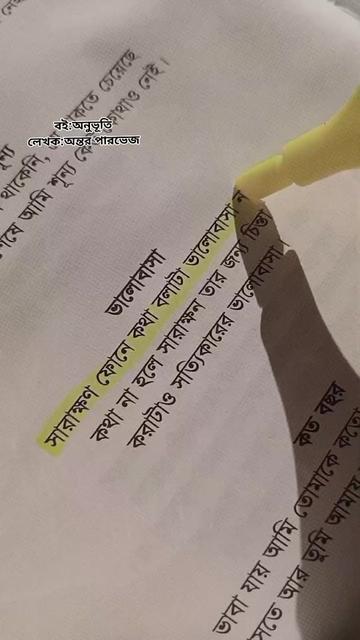 বই:অনুভূতি
লেখক:অন্তর পারভেজ
থাকেনি, থাকতে চেয়েছে
শেষে আমি শূন্য কোথাও নেই।
ভালোবাসা
সারাক্ষণ ফোনে কথা বলাটা ভালোবাসা
কথা না হলে সারাক্ষন তার জন্য চিন্তা
করাটাও সত্যিকারের ভালোবাসা।
কত বছর
ভাবা যায় আমি তোমাকে কতো
আর তুমি আমায়